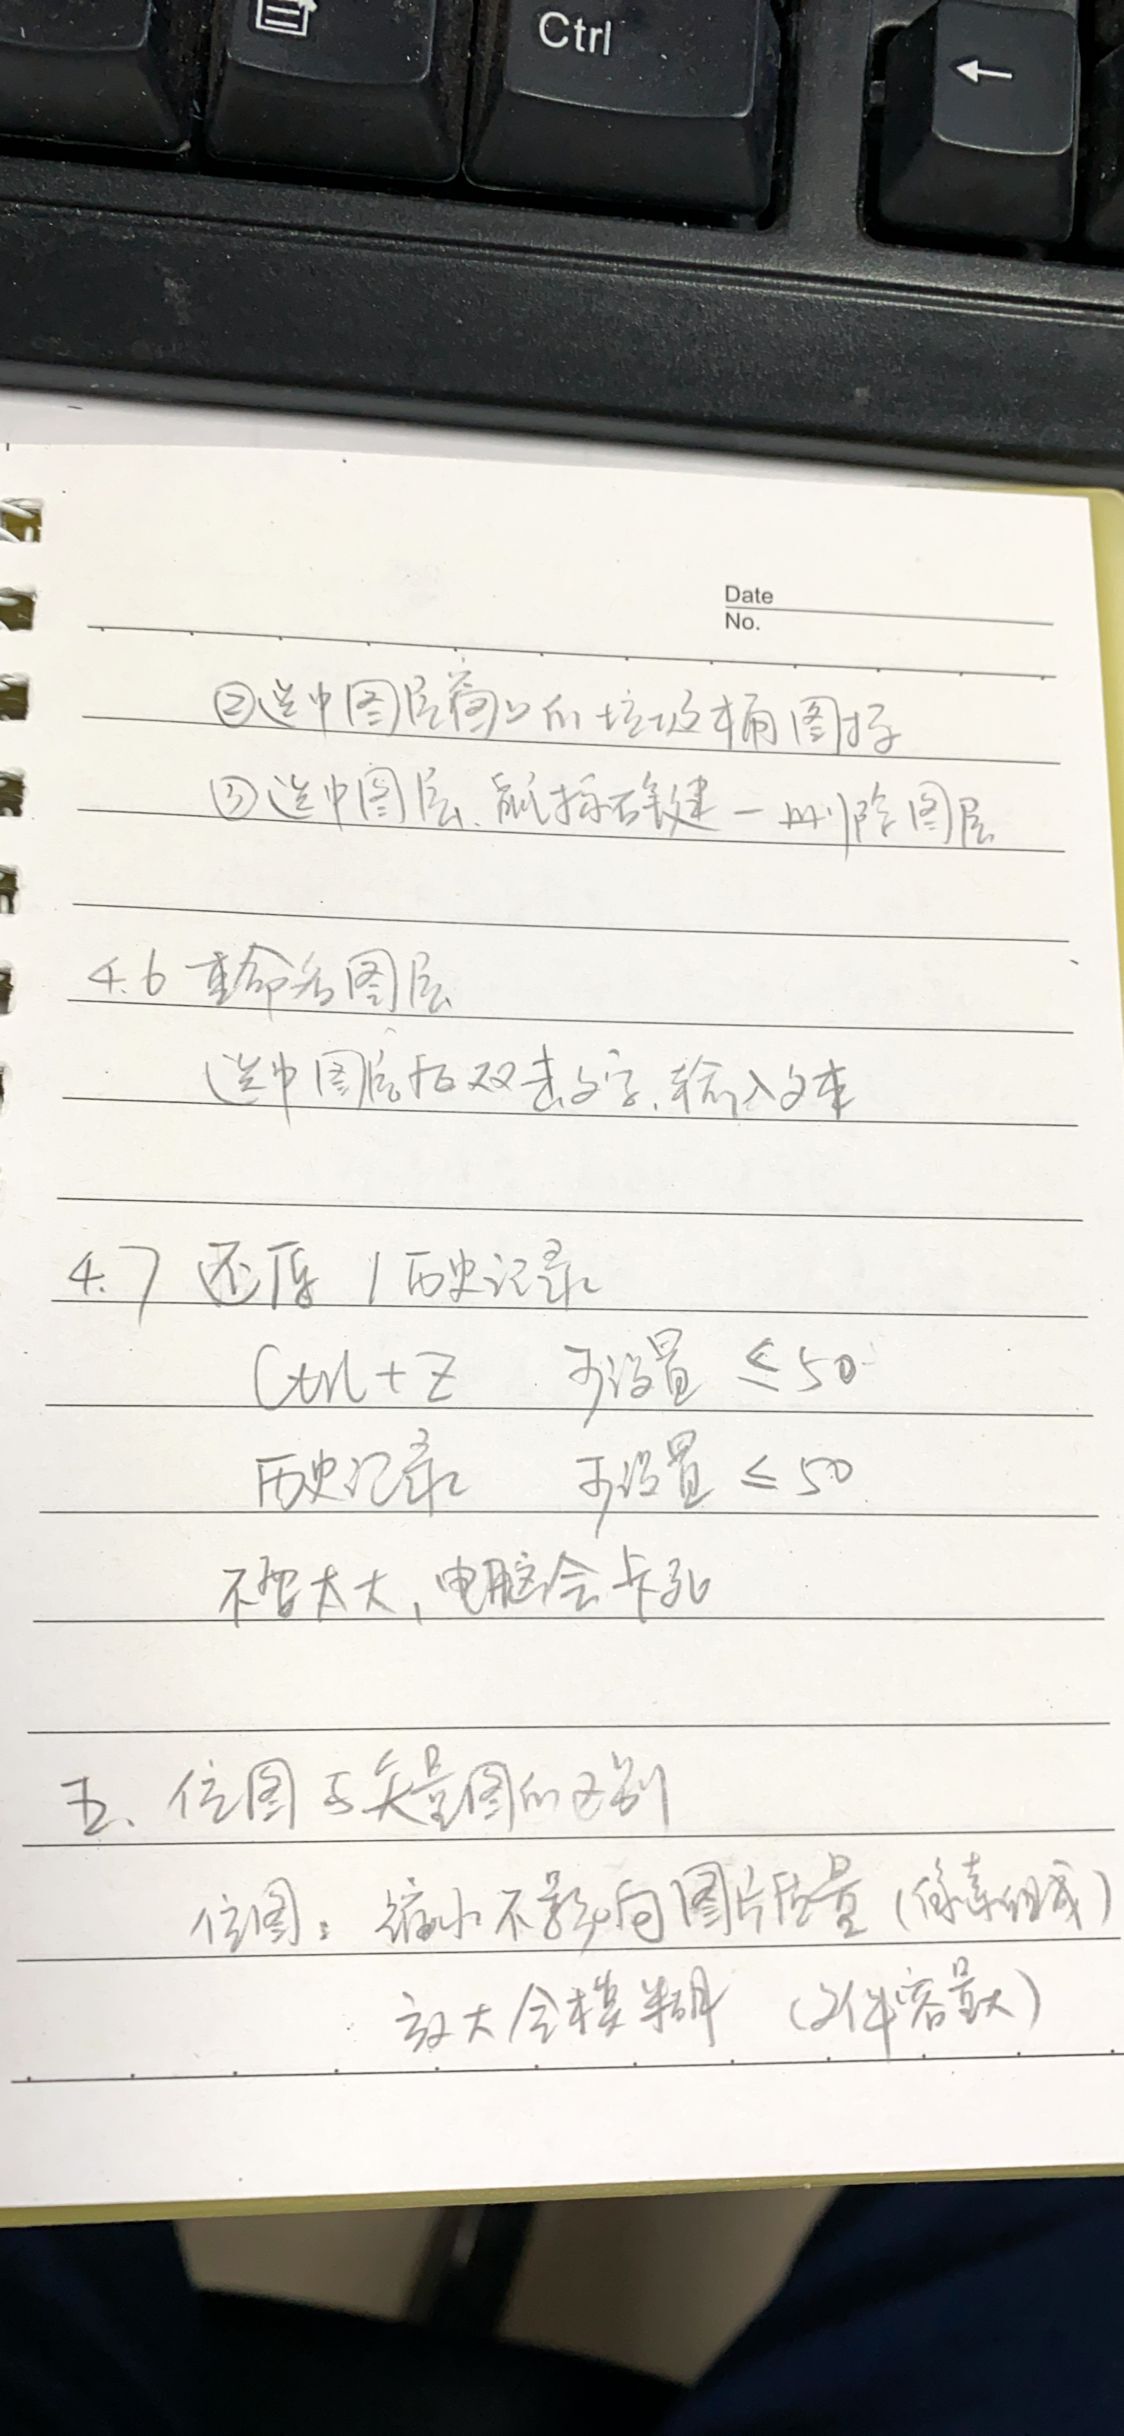 Ctrl
←
Date
No.
②选中图层窗口的垃圾桶图标
③选中图层、鼠标右键—删除图层
4.6 重命名图层
选中图层后双击文字、输入文本
4.7 还原/历史记录
Ctrl+Z 可设置 ≤50
历史记录 可设置 ≤50
不留太大,电脑会卡死
五、位图与矢量图的区别
位图: 缩小不影响图片质量 (像素组成)
放大会模糊 (文件容量大)